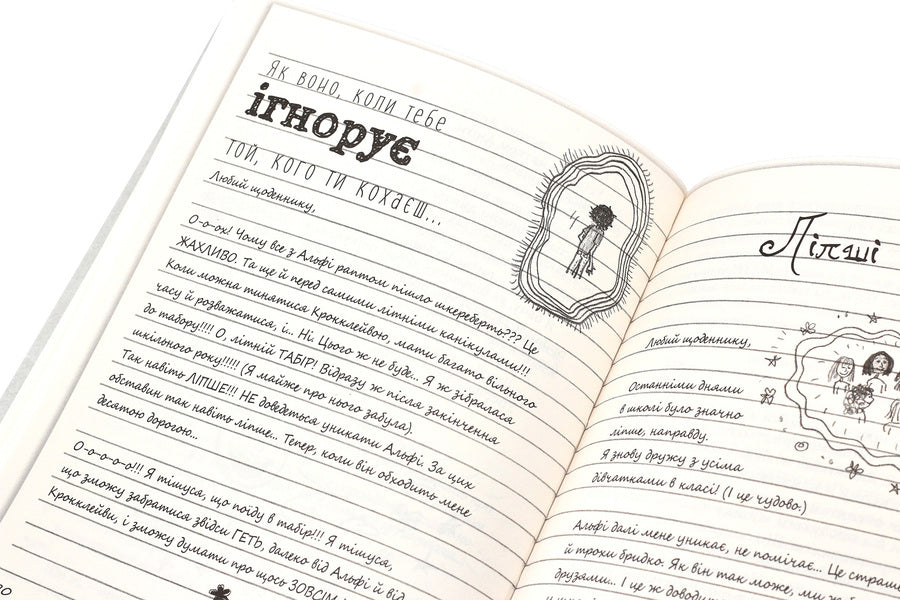 Як воно, коли тебе
ігнорує
той, кого ти кохаєш...
Любий щоденнику,
О-о-ох! Чому все з Альфі раптом пішло шкереберть??? Це
ЖАХЛИВО. Та ще й перед самими літніми канікулами!!!
Коли можна тинятися Крокклейвою, мати багато вільного
часу й розважатися, і.. Ні. Цього ж не буде... Я ж зібралася
до табору!!!! О, літній ТАБІР! Відразу ж після закінчення
шкільного року!!!!! (Я майже про нього забула).
Так навіть ЛІПШЕ!!! НЕ доведеться уникати Альфі. За цих
обставин так навіть ліпше... Тепер, коли він обходить мене
десятою дорогою...
О-о-о-о-о!!! Я тішуся, що поїду в табір!!! Я тішуся,
що зможу забратися звідси ГЕТЬ, далеко від Альфі й від
Крокклейви, і зможу думати про щось ЗОВСІМ
Ліпші
Любий щоденнику,
Останніми днями
в школі було значно
ліпше, направду.
Я знову дружу з усіма
дівчатками в класі! (І це чудово.)
Альфі далі мене уникає, не помічає... Це страшно
й трохи бридко. Як він так може, ми ж
друзями... І це ж